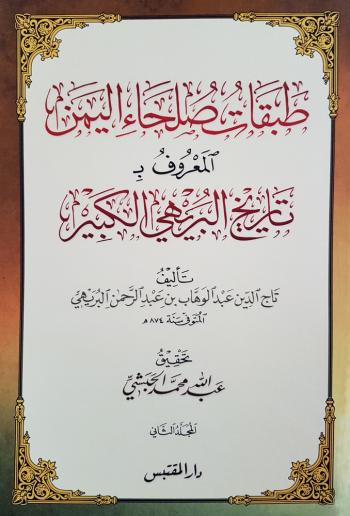 طَبَقَاتُ صُلَحَاءِ اليَمَنِ
المَعْرُوفُ بـ
تَارِيْخِ البُرَيْهِيّ الكَبِيْرِ
تَأليْفُ
تَاج الدِين عَبْد الوَهَّاب بن عَبْد الرَّحمن البُرَيْهيّ
المُتَوَفَّى سَنَة ٨٧٤ هـ
تَحْقِيْقُ
عَبْد اللّٰه محمَّد الحبَشيّ
المُجَلَّدُ الثَّاني
دار المقتبس